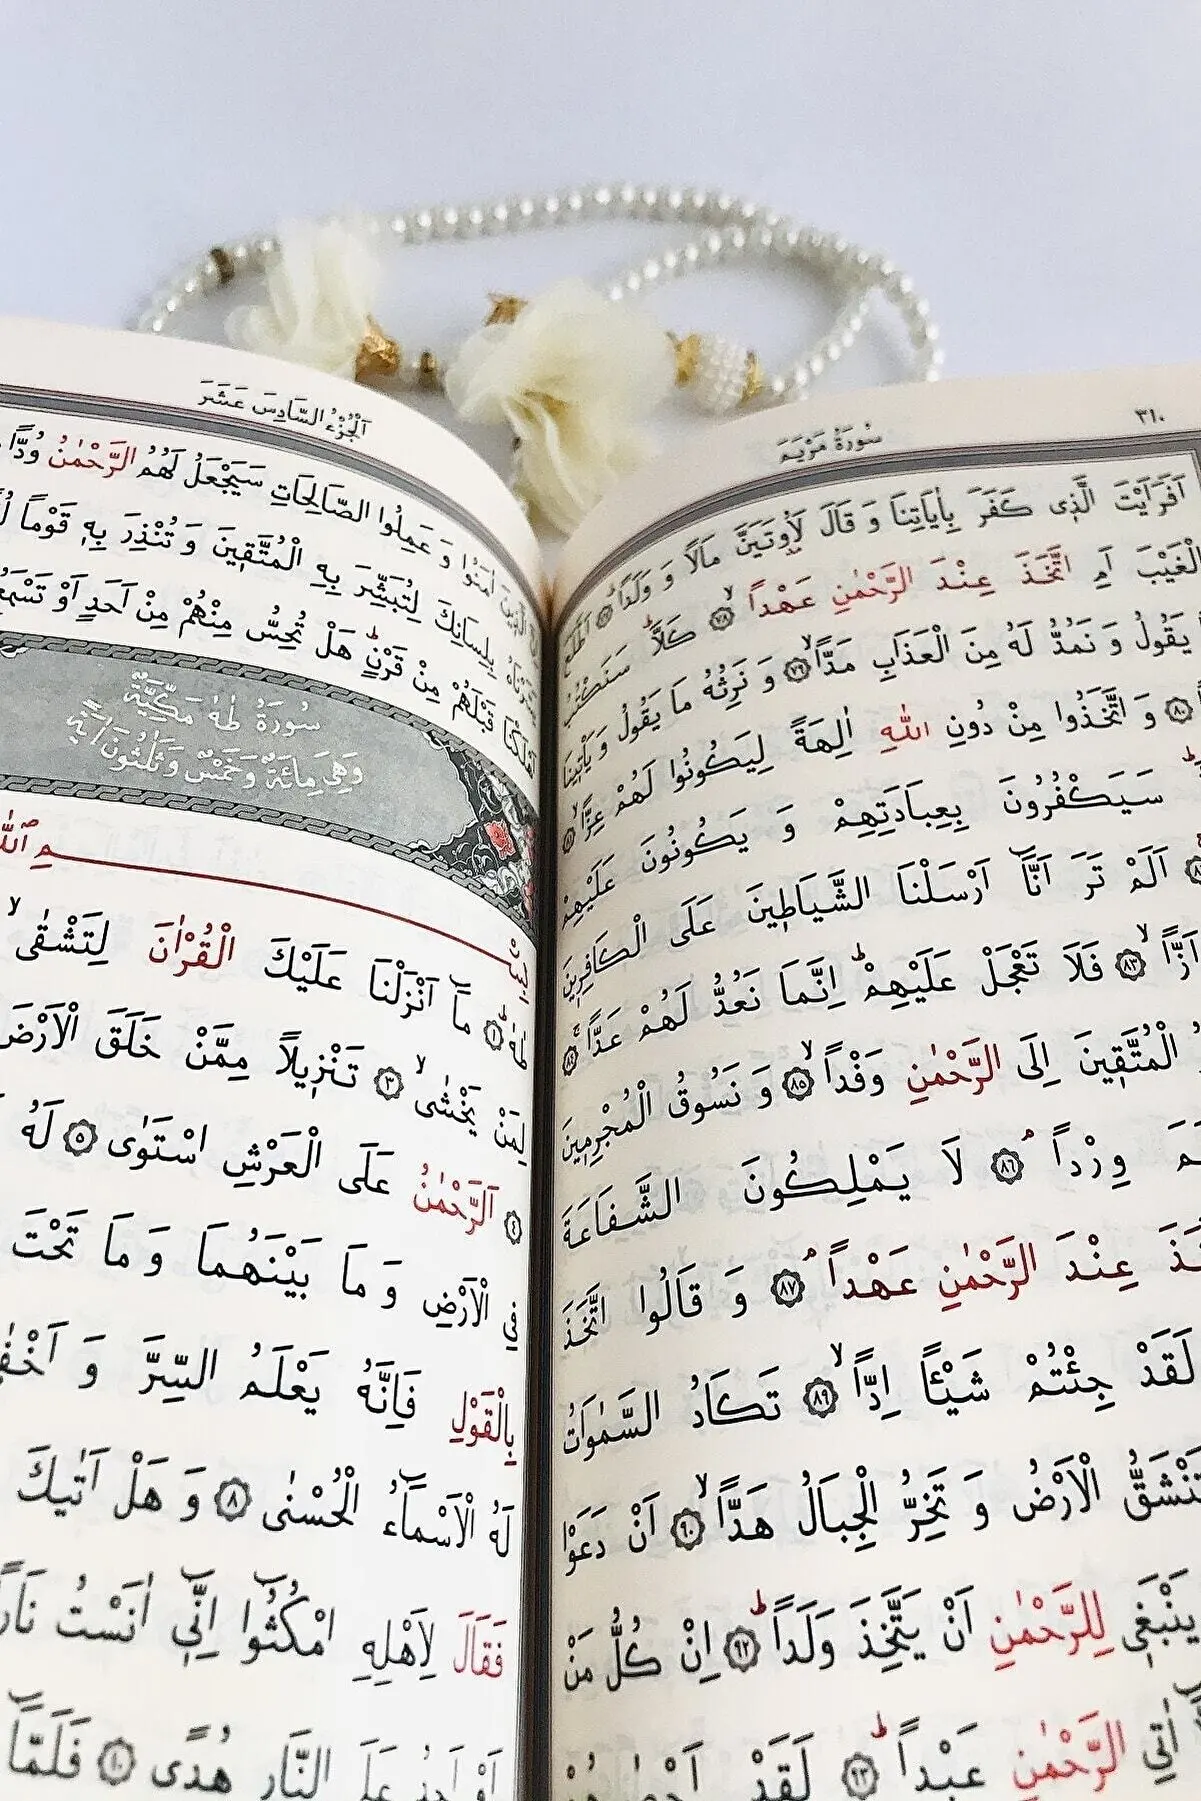 ٣١٠
سُورَةُ مَرْيَمَ
اَفَرَاَيْتَ الَّذ۪ي كَفَرَ بِاٰيَاتِنَا وَ قَالَ لَاُو۫تَيَنَّ مَالًا وَ وَلَدًاۜ ﴿٧٧﴾ اَطَّلَعَ
الْغَيْبَ اَمِ اتَّخَذَ عِنْدَ الرَّحْمٰنِ عَهْدًاۙ ﴿٧٨﴾ كَلَّاۜ سَنَكْتُبُ
يَقُولُ وَ نَمُدُّ لَهُ مِنَ الْعَذَابِ مَدًّاۙ ﴿٧٩﴾ وَ نَرِثُهُ مَا يَقُولُ وَ يَأْت۪ينَا
﴿٨٠﴾ وَ اتَّخَذُوا مِنْ دُونِ اللّٰهِ اٰلِهَةً لِيَكُونُوا لَهُمْ عِزًّاۙ ﴿٨١﴾
سَيَكْفُرُونَ بِعِبَادَتِهِمْ وَ يَكُونُونَ عَلَيْهِمْ
اَلَمْ تَرَ اَنَّٓا اَرْسَلْنَا الشَّيَاط۪ينَ عَلَى الْكَافِر۪ينَ
اَزًّاۙ ﴿٨٣﴾ فَلَا تَعْجَلْ عَلَيْهِمْۜ اِنَّمَا نَعُدُّ لَهُمْ عَدًّاۚ ﴿٨٤﴾
الْمُتَّق۪ينَ اِلَى الرَّحْمٰنِ وَفْدًاۙ ﴿٨٥﴾ وَ نَسُوقُ الْمُجْرِم۪ينَ
وِرْدًاۢ ﴿٨٦﴾ لَا يَمْلِكُونَ الشَّفَاعَةَ
عِنْدَ الرَّحْمٰنِ عَهْدًاۢ ﴿٨٧﴾ وَ قَالُوا اتَّخَذَ
لَقَدْ جِئْتُمْ شَيْـًٔا اِدًّاۙ ﴿٨٩﴾ تَكَادُ السَّمٰوَاتُ
الْاَرْضُ وَ تَخِرُّ الْجِبَالُ هَدًّاۙ ﴿٩٠﴾ اَنْ دَعَوْا
يَنْبَغ۪ي لِلرَّحْمٰنِ اَنْ يَتَّخِذَ وَلَدًاۜ ﴿٩٢﴾ اِنْ كُلُّ مَنْ
اٰتِي الرَّحْمٰنِ عَبْدًاۜ ﴿٩٣﴾ لَقَدْ
اَلْجُزْءُ السَّادِسَ عَشَرَ
الَّذ۪ينَ اٰمَنُوا وَ عَمِلُوا الصَّالِحَاتِ سَيَجْعَلُ لَهُمُ الرَّحْمٰنُ وُدًّا
بِلِسَانِكَ لِتُبَشِّرَ بِهِ الْمُتَّق۪ينَ وَ تُنْذِرَ بِه۪ قَوْمًا
اَهْلَكْنَا قَبْلَهُمْ مِنْ قَرْنٍۜ هَلْ تُحِسُّ مِنْهُمْ مِنْ اَحَدٍ اَوْ تَسْمَعُ
سُورَةُ طٰهٰ مَكِّيَّةٌ
وَهِيَ مِائَةٌ وَخَمْسٌ وَثَلٰثُونَ اٰيَةً
طٰهٰۜ ﴿١﴾ مَٓا اَنْزَلْنَا عَلَيْكَ الْقُرْاٰنَ لِتَشْقٰىۙ
لِمَنْ يَخْشٰىۙ ﴿٣﴾ تَنْز۪يلًا مِمَّنْ خَلَقَ الْاَرْضَ
﴿٤﴾ اَلرَّحْمٰنُ عَلَى الْعَرْشِ اسْتَوٰى ﴿٥﴾ لَهُ
فِي الْاَرْضِ وَ مَا بَيْنَهُمَا وَ مَا تَحْتَ
بِالْقَوْلِ فَاِنَّهُ يَعْلَمُ السِّرَّ وَ اَخْفٰى
لَهُ الْاَسْمَٓاءُ الْحُسْنٰى ﴿٨﴾ وَ هَلْ اَتٰيكَ
فَقَالَ لِاَهْلِهِ امْكُثُٓوا اِنّ۪ٓي اٰنَسْتُ نَارًا
اَوْ اَجِدُ عَلَى النَّارِ هُدًى ﴿١٠﴾ فَلَمَّٓا